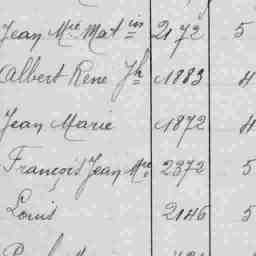 Jean Mie Mat in 2172 5
Albert Rene Jh 1883 4
Jean Marie 1872 4
François Jean Mie 2372 5
Louis 2146 5